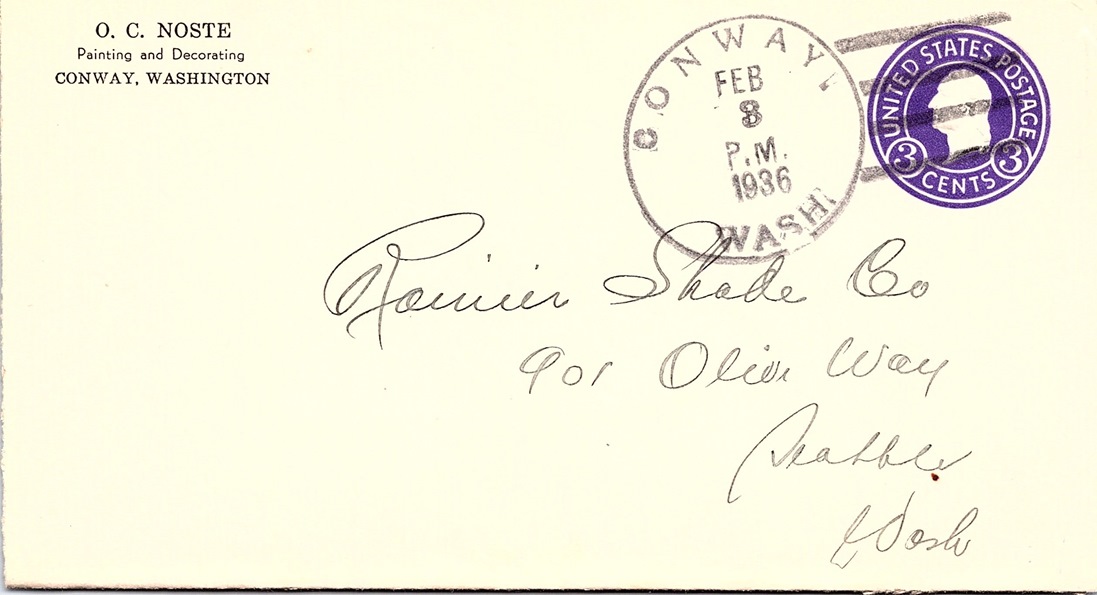 O. C. NOSTE
Painting and Decorating
CONWAY, WASHINGTON
CONWAY
FEB
3
P.M.
1936
WASH
UNITED STATES POSTAGE
3 3
CENTS
Rainier Shade Co
901 Olive Way
Seattle
Wash